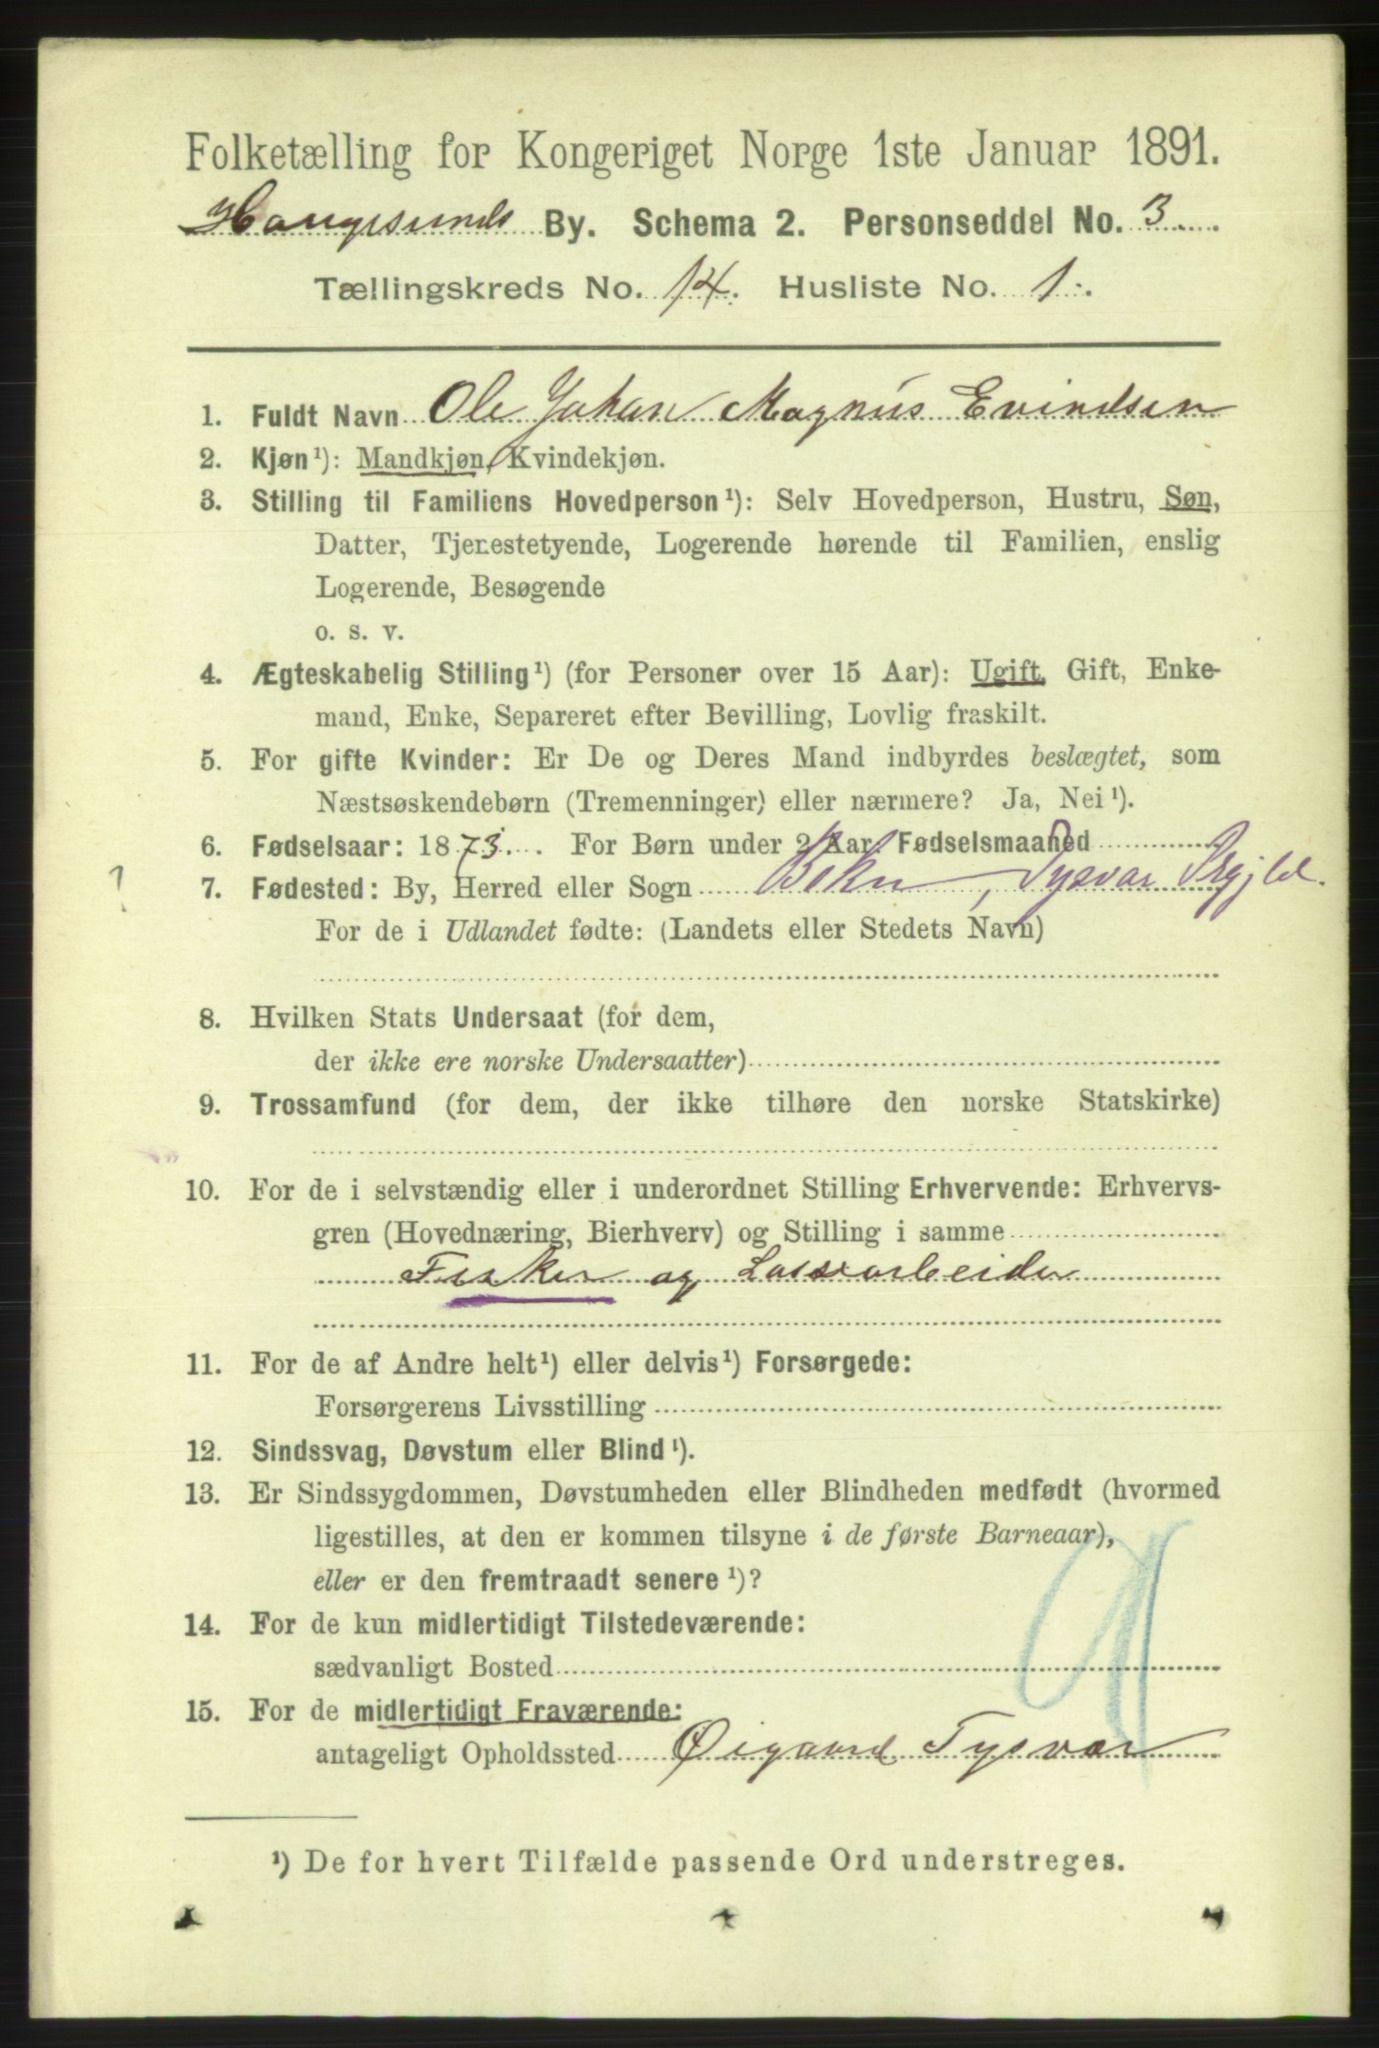 Folketælling for Kongeriget Norge 1ste Januar 1891.
Haugesunds By. Schema 2. Personseddel No. 3
Tællingskreds No. 14. Husliste No. 1.
1. Fuldt Navn Ole Johan Magnus Evindsen
2. Kjøn¹): Mandkjøn, Kvindekjøn.
3. Stilling til Familiens Hovedperson¹): Selv Hovedperson, Hustru, Søn,
Datter, Tjenestetyende, Logerende hørende til Familien, enslig
Logerende, Besøgende
o. s. v.
4. Ægteskabelig Stilling¹) (for Personer over 15 Aar): Ugift, Gift, Enke-
mand, Enke, Separeret efter Bevilling, Lovlig fraskilt.
5. For gifte Kvinder: Er De og Deres Mand indbyrdes beslægtet, som
Næstsøskendebørn (Tremenninger) eller nærmere? Ja, Nei¹).
6. Fødselsaar: 1873. For Børn under 2 Aar Fødselsmaaned
? 7. Fødested: By, Herred eller Sogn Bokn, Tysvær Prgjld.
For de i Udlandet fødte: (Landets eller Stedets Navn)
8. Hvilken Stats Undersaat (for dem,
der ikke ere norske Undersaatter)
9. Trossamfund (for dem, der ikke tilhøre den norske Statskirke)
10. For de i selvstændig eller i underordnet Stilling Erhvervende: Erhvervs-
gren (Hovednæring, Bierhverv) og Stilling i samme
Fisker og Løsarbeider
11. For de af Andre helt¹) eller delvis¹) Forsørgede:
Forsørgerens Livsstilling
12. Sindssvag, Døvstum eller Blind¹).
13. Er Sindssygdommen, Døvstumheden eller Blindheden medfødt (hvormed
ligestilles, at den er kommen tilsyne i de første Barneaar),
eller er den fremtraadt senere¹)?
14. For de kun midlertidigt Tilstedeværende:
sædvanligt Bosted
15. For de midlertidigt Fraværende:
antageligt Opholdssted Øigaard Tysvær
¹) De for hvert Tilfælde passende Ord understreges.